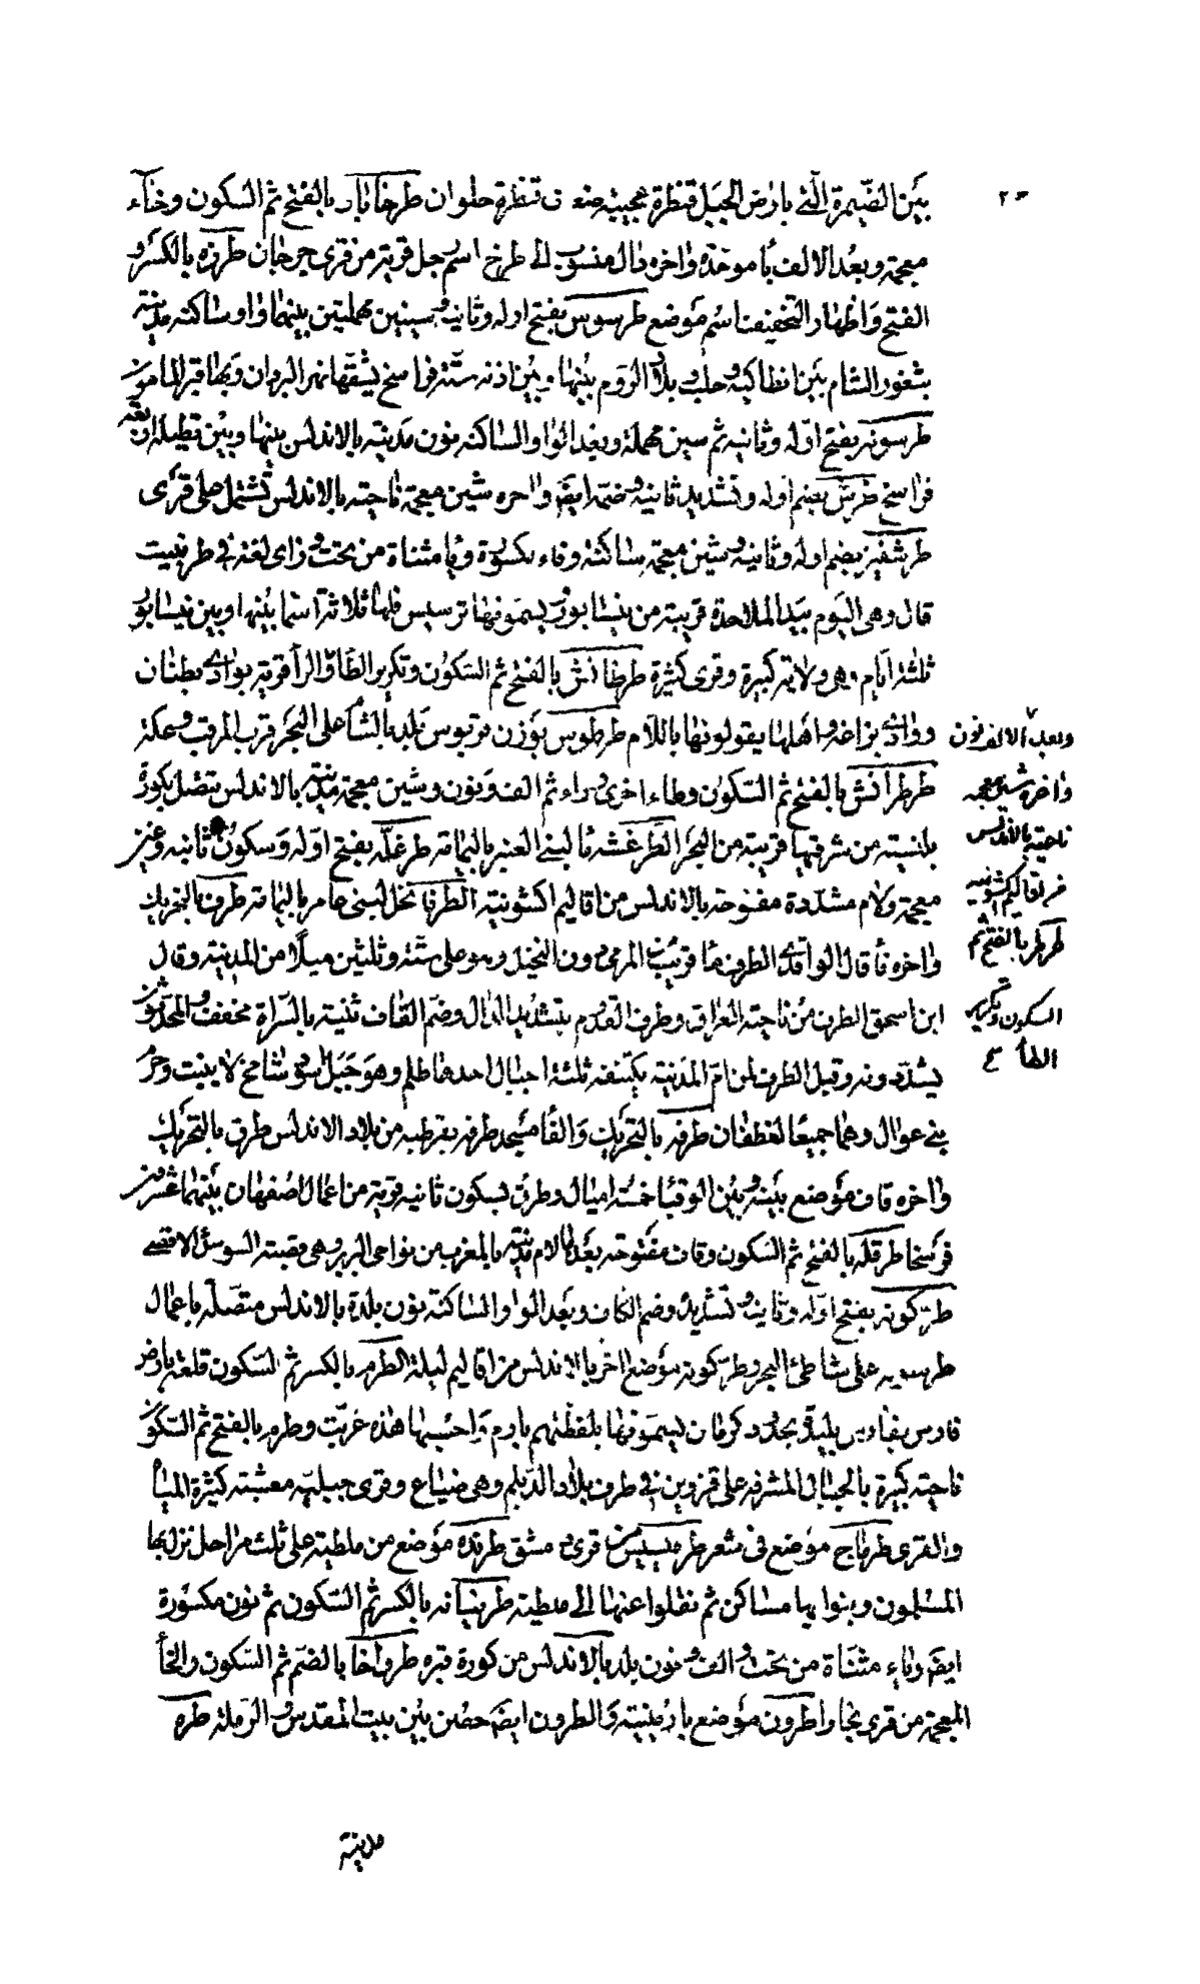 بين الصيمرة التي بارض الجبل قنطرة عجيبة ضعف قنطرة حلوان طرخاباد بالفتح ثم السكون وخاء
معجمة وبعد الالف با موحدة واخره دال منسوب الى طرخ اسم رجل قرية من قرى جرجان طرزه بالكسر و
الفتح واظهار التخفيف اسم موضع طرسوس بفتح اوله وثانيه وسينين مهملتين بينهما واو ساكنه مدينة
بثغور الشام بين انطاكية وحلب وبلاد الروم بينها وبين اذنه ستة فراسخ يشقها نهر البردان وبها قبر المامون
طرسونه بفتح اوله وثانيه ثم سين مهملة وبعد الواو الساكنه نون مدينة بالاندلس بينها وبين تطيلة اربعة
فراسخ طرش بضم اوله وتشديد ثانيه وضمه ايضا واخره شين معجمة ناحية بالاندلس تشتمل على قرى
طرشفيز بضم اوله وثانيه وشين معجمة ساكنة وفاء مكسورة ويا مثناة من تحت وزاى لغة في طرثيث
قال وهى اليوم بيد الملاحدة قريبة من نيسابور يسمونها ترسيس فلها ثلاثة اسما بينها وبين نيسابور
ثلثة ايام وهى ولاية كبيرة وقرى كثيرة طرطانش بالفتح ثم السكون وتكرير الطاء والرا قرية بوادى بطنان
ووادى بزاعه واهلها يقولونها باللام طرطوس بوزن قربوس بلد بالشام على البحر قرب المرقب وعكة
طرطرانش بالفتح ثم السكون وطاء اخرى وراء ثم الف ونون وشين معجمة مدينة بالاندلس يتصل بكورة
بلنسية من شرقيها قريبة من البحر الطرغشه ما لبني العنبر باليمامة طرغله بفتح اوله وسكون ثانيه وغين
معجمة ولام مشددة مفتوحة بالاندلس من اقاليم اكشونية الطرفا نخل لبنى عامر باليمامة طرف بالتحريك
واخره فا قال الواقدى الطرف ما قريب من المرقى دون النخيل وهو على ستة وثلثين ميلا من المدينة وقال
ابن اسحق الطرف من ناحية العراق وطرف القدوم بتشديد الدال وضم القاف ثنية بالسراة مخفف والمحدثون
يشددونه وقيل الطرف لمن ام المدينة يكتنفه ثلثة اجبال احدها ظلم وهو جبل اسود شامخ لا ينبت وحزم
بنى عوال وهما جميعا لغطفان طرفه بالتحريك والفا مسجد طرفه بقرطبه من بلاد الاندلس طرق بالتحريك
واخره قاف موضع بينه وبين الوقبا خمسة اميال وطرق بسكون ثانيه قرية من اعمال اصفهان بينهما عشرون
فرسخا طرقله بالفتح ثم السكون وقاف مفتوحة بعدها لام مدينة بالمغرب من نواحى البربر وهى قصبة السوس الاقصى
طركونه بفتح اوله وثانيه وتشديده وضم الكاف وبعد الواو الساكنة نون بلدة بالاندلس متصلة باعمال
طرسونه على شاطئ البحر وطركونه موضع اخر بالاندلس من اقاليم لبلة الطرم بالكسر ثم السكون قلعة بارض
فارس بفاريس بليدة بحدود كرمان يسمونها بلفظهم بارم واحسبها هذه عربت وطرم بالفتح ثم السكون
ناحية كبيرة بالجبال المشرفة على قزوين في طرف بلاد الديلم وهى ضياع وقرى جبلية معشبة كثيرة المياه
والقرى طرماج موضع فى شعر طرميسى من قرى دمشق طرنده موضع من ملطية على ثلث مراحل نزل بها
المسلمون وبنوا بها مساكن ثم نقلوا عنها الى ملطية طرنيانه بالكسر ثم السكون ثم نون مكسورة
ايضا وياء مثناة من تحت والف ونون بلد بالاندلس من كورة قبره طرواخا بالضم ثم السكون والخاء
المعجمة من قرى بخارا طرون موضع بارمينية والطرون ايضا حصن بين بيت المقدس والرملة طره
وبعد الالف نون
واخره شين معجمه
ناحية بالاندلس
من اقاليم اكشونيه
طرطر بالفتح ثم
السكون وتكرير
الطا
مدينة